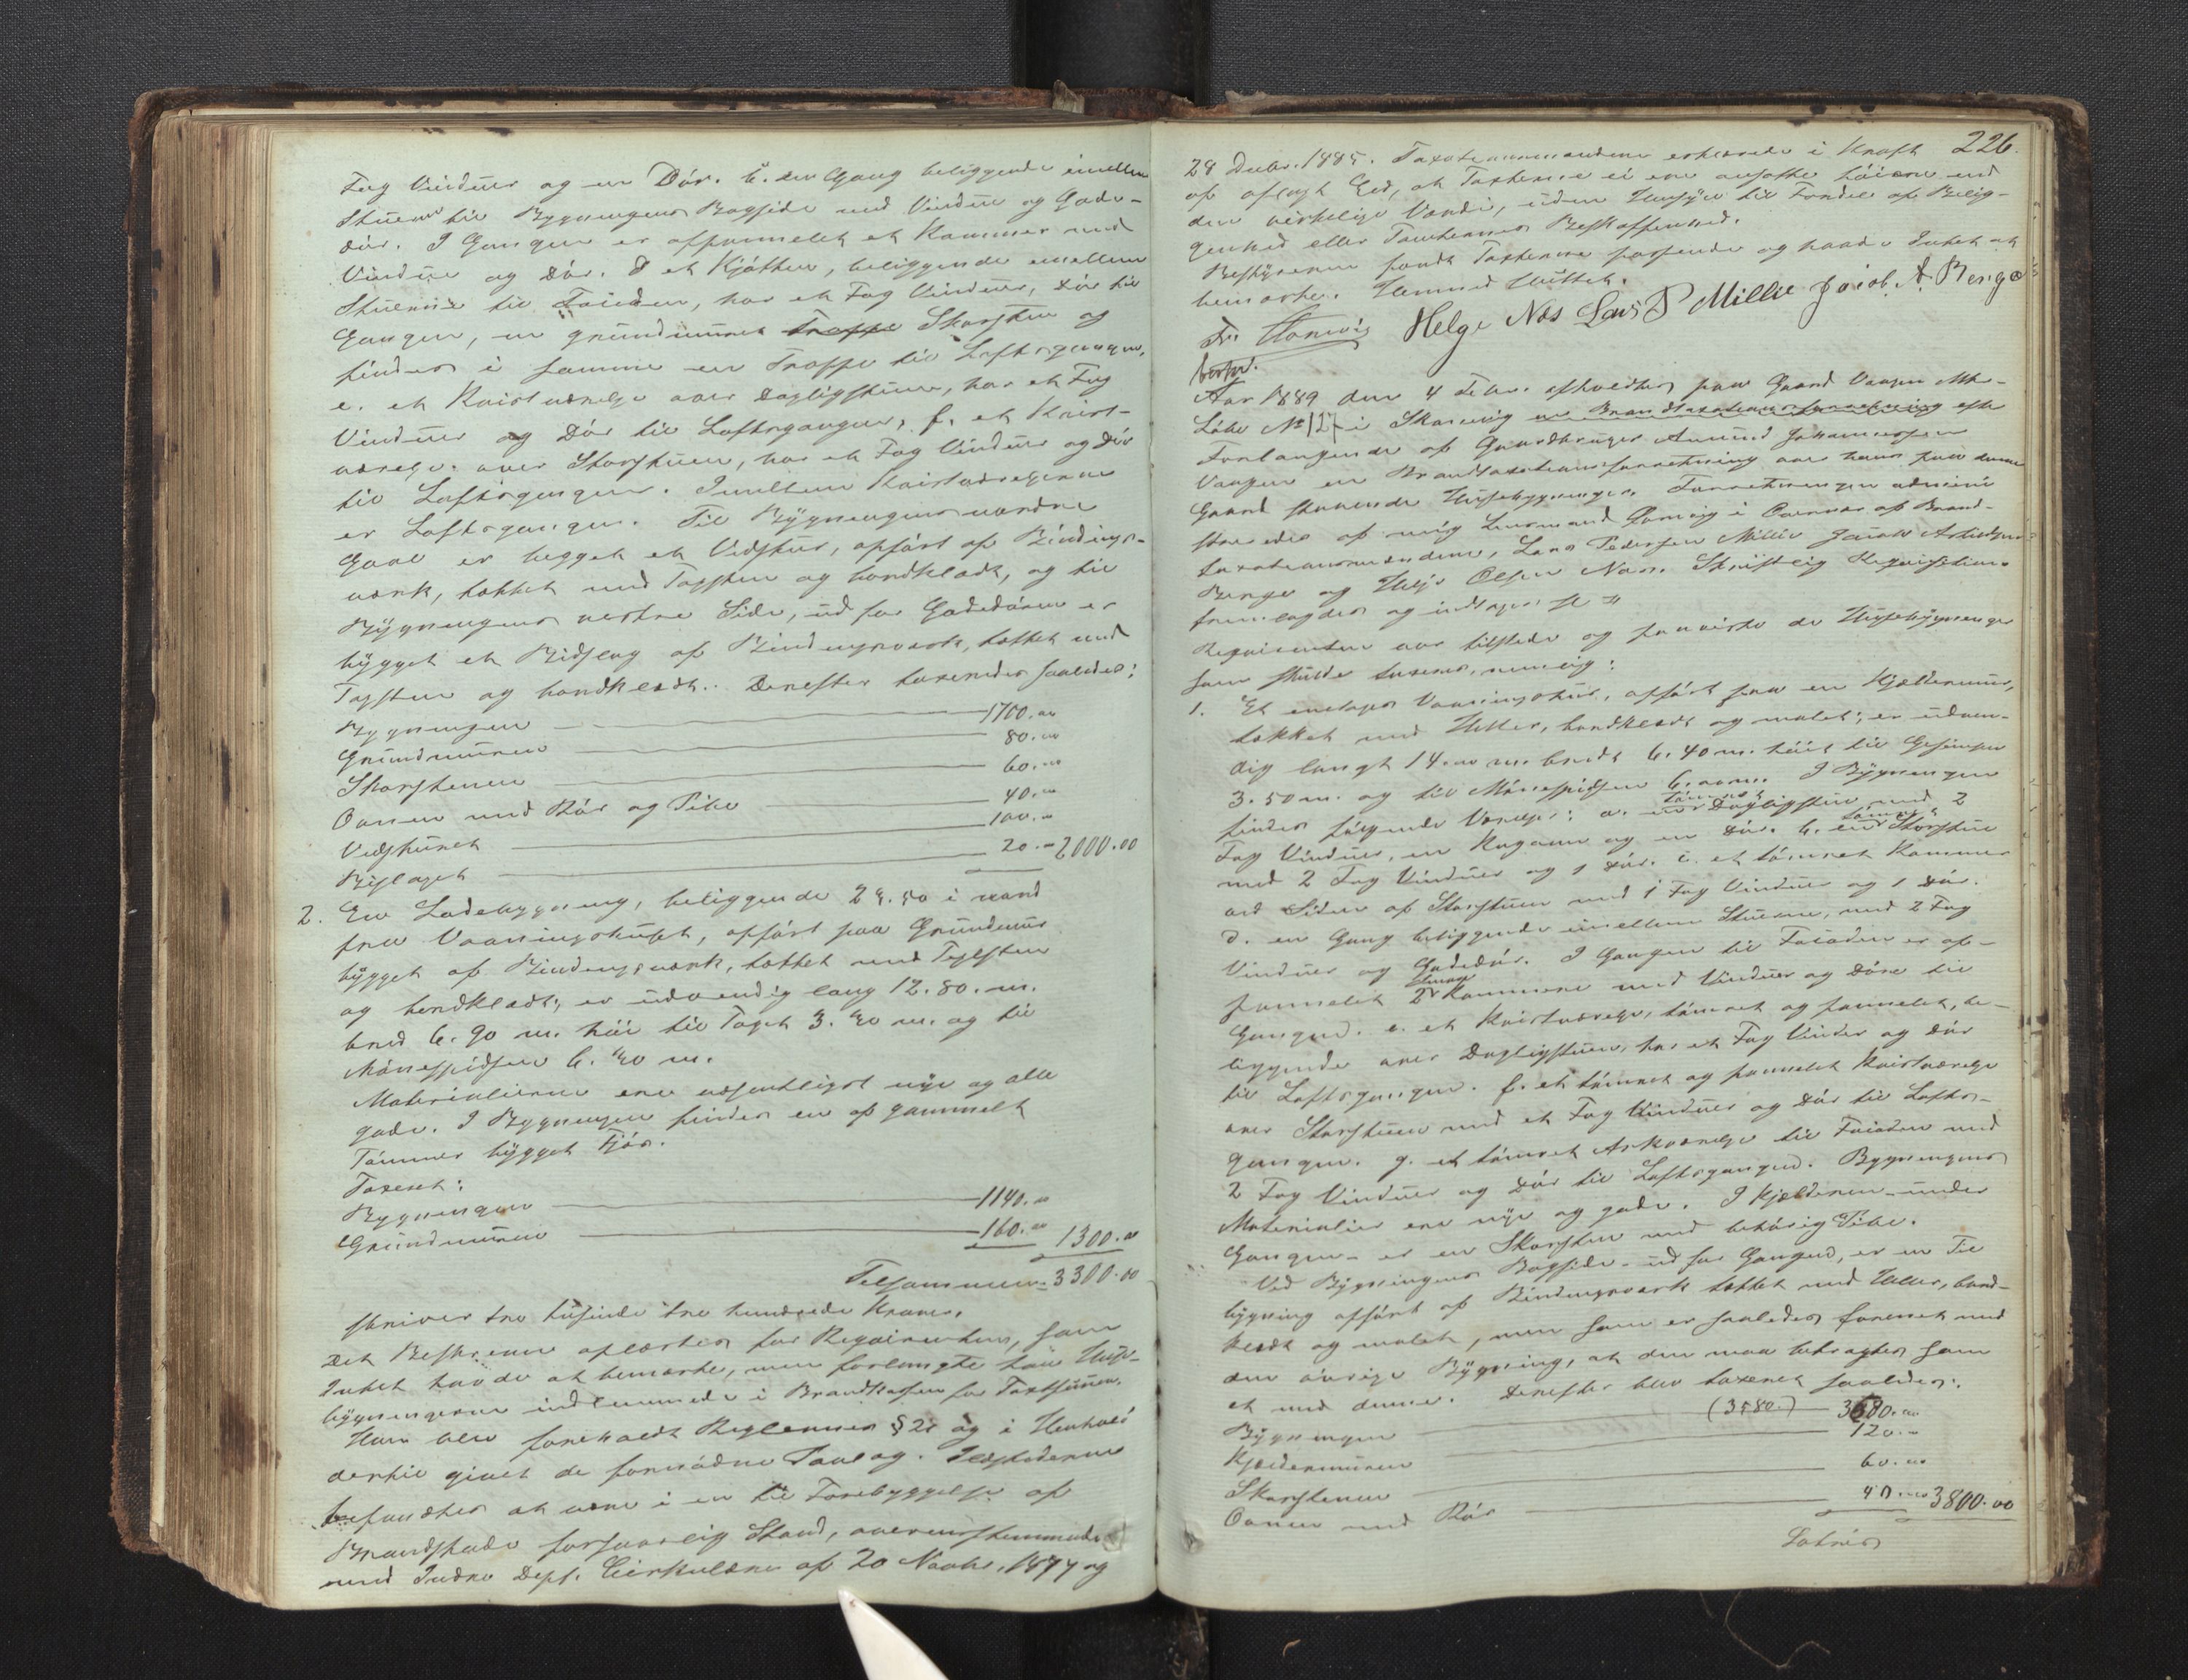 Fag Vinduer og en Dör. b. en Gang beliggende imellem
Stuerne til Bygningens Bagside med Vindue og Gade-
dör. I Gangen er afpannelet et Kammer med
Vindue og Dör. d et Kjökken, beliggende imellem
Stuerne til Faiaden, har et Fag Vinduer, Dör til
Gangen, en grundmuret Trappe Skorsten og
findes i samme en Trappe til Loftsgangen,
e. et Kvistværelse over Dagligstuen, har et Fag
Vinduer og Dör til Loftsgangen, f. et Kvist-
værelse over Storstuen, har et Fag Vinduer og Dör
til Loftsgangen. Imellem Kvistværelserne
er Loftsgangen. Til Bygningens nordre
Gavl er bygget et Vedskur, opfört af Bindings-
værk, tækket med Tagsten og bordklædt, og til
Bygningens vestre Side, ud for Gadedören er
bygget et Bislag af Bindingsværk, tækket med
Tagsten og bordklædt. Derefter taxeredes saaledes:
Bygningen 1700.00
Grundmuren 80.00
Skorstenen 60.00
Ovnen med Rör og Pibe 40.00
Vedskuret 100.00
Bislaget 20.00 2000.00
2. En Ladebygning, beliggende 28.50 i nord
fra Vaaningshuset, opfört paa Grundmur
bygget af Bindingsværk, tækket med Tagsten
og bordklædt; er udvendig lang 12.80. m.
bred 6.90 m. höi til Taget 3.40 m. og til
Mönespidsen 6.40 m.
Materialierne ere væsentligst nye og alle
gode. I Bygningen findes en af gammelt
Tömmer bygget Fjös.
Taxeret:
Bygningen 1140.00
Grundmuren 160.00 1300.00
Tilsammen 3300.00
skriver tre tusinde tre hundrede Kroner.
Det Beskrevne oplæstes for Requirenten, som
Intet havde at bemærke, men forlangte sine Huse-
bygningerne indlemmede i Brandkassen for Taxtsummen.
Han blev foreholdt Reglernes § 21 og i Henhold
dertil givet de fornödne Paalæg. Ildstederne
befandtes at være i en til Forebyggelse af
Brandskade forsvarlig Stand, overensstemmende
med Indre Dept. Cirkulære af 20 Novbr. 1877 og
226.
28 Decbr. 1885. Taxationsmændene erklærede i Kraft
af aflagt Eed, at Taxterne ei ere ansatte höiere end
den virkelige Værdi, uden Hensyn til Fordel af Belig-
genhed eller Tomternes Beskaffenhed.
Bestyreren fandt Taxterne passende og havde Intet at
bemærke. Hermed sluttet.
Fr. Helge Næs Lars P Millie Jacob A. Berge
bestyr.
Aar 1889 den 4 Febr. afholdtes paa Gaard Vaagen Mtr.
Löbe No 127 i Skaanevig en Brandtaxationsforretning efter
Forlangende af Gaardbruger Amund Johannessen
Vaagen en Brandtaxationsforretning over hans paa denne
Gaard staaende Husebygninger. Forretningen admini-
streredes af mig Lensmand i Overvær af Brand-
taxationsmændene, Lars Pedersen Millie Jacob Askildsen
Berge og Helje Olsen Næs. Skriftlig Requisition
fremlagdes og indtages
Requirenten var tilstede og paaviste de Husebygninger
som skulde taxeres, nemlig:
1. Et enetages Vaaningshus, opfört paa en Kjældermur,
tækket med Heller, bordklædt og malet; er udven-
dig langt 14.00 m. bredt 6.40 m. höit til Gesimsen
3.50 m. og til Mönespidsen 6.00 m. I Bygningen
findes fölgende Værelser: a. en tömret Dagligstue med 2
Fag Vinduer, en Kogeovn og en Dör. b. en tömret Storstue
med 2 Fag Vinduer og 1 Dör. c. et tömret Kammer
ved Siden af Storstuen med 1 Fag Vinduer og 1 Dör.
d. en Gang beliggende imellem Stuerne, med 2 Fag
Vinduer og Gadedör. I Gangen til Faiaden er af-
pannelet 2 smaa Kammere med Vinduer og Döre til
Gangen. e. et Kvistværelse, tömret og pannelet, be-
liggende over Dagligstuen, har et Fag Vinduer og Dör
til Loftsgangen. f. et tömret og pannelet Kvistværelse
over Storstuen med et Fag Vinduer og Dör til Lofts-
gangen. g. et tömret Arkværelse til Faiaden med
2 Fag Vinduer og Dör til Loftsgangen. Bygningens
Materialier ere nye og gode. I Kjælderen under
Gangen er en Skorsten med behörig Pibe.
Ved Bygningens Bagside ud for Gangen, er en Til
bygning opfört af Bindingsværk tækket med Heller, bord-
klædt og malet, men som er saaledes forenet med
den övrige Bygning, at den maa betragtes som
et med denne. Derefter blev taxeret saaledes:
Bygningen (3580.) 3580.00
Kjældermuren 120.00
Skorstenen 60.00
Ovnen med Rör 40.00 3800.00
Latus